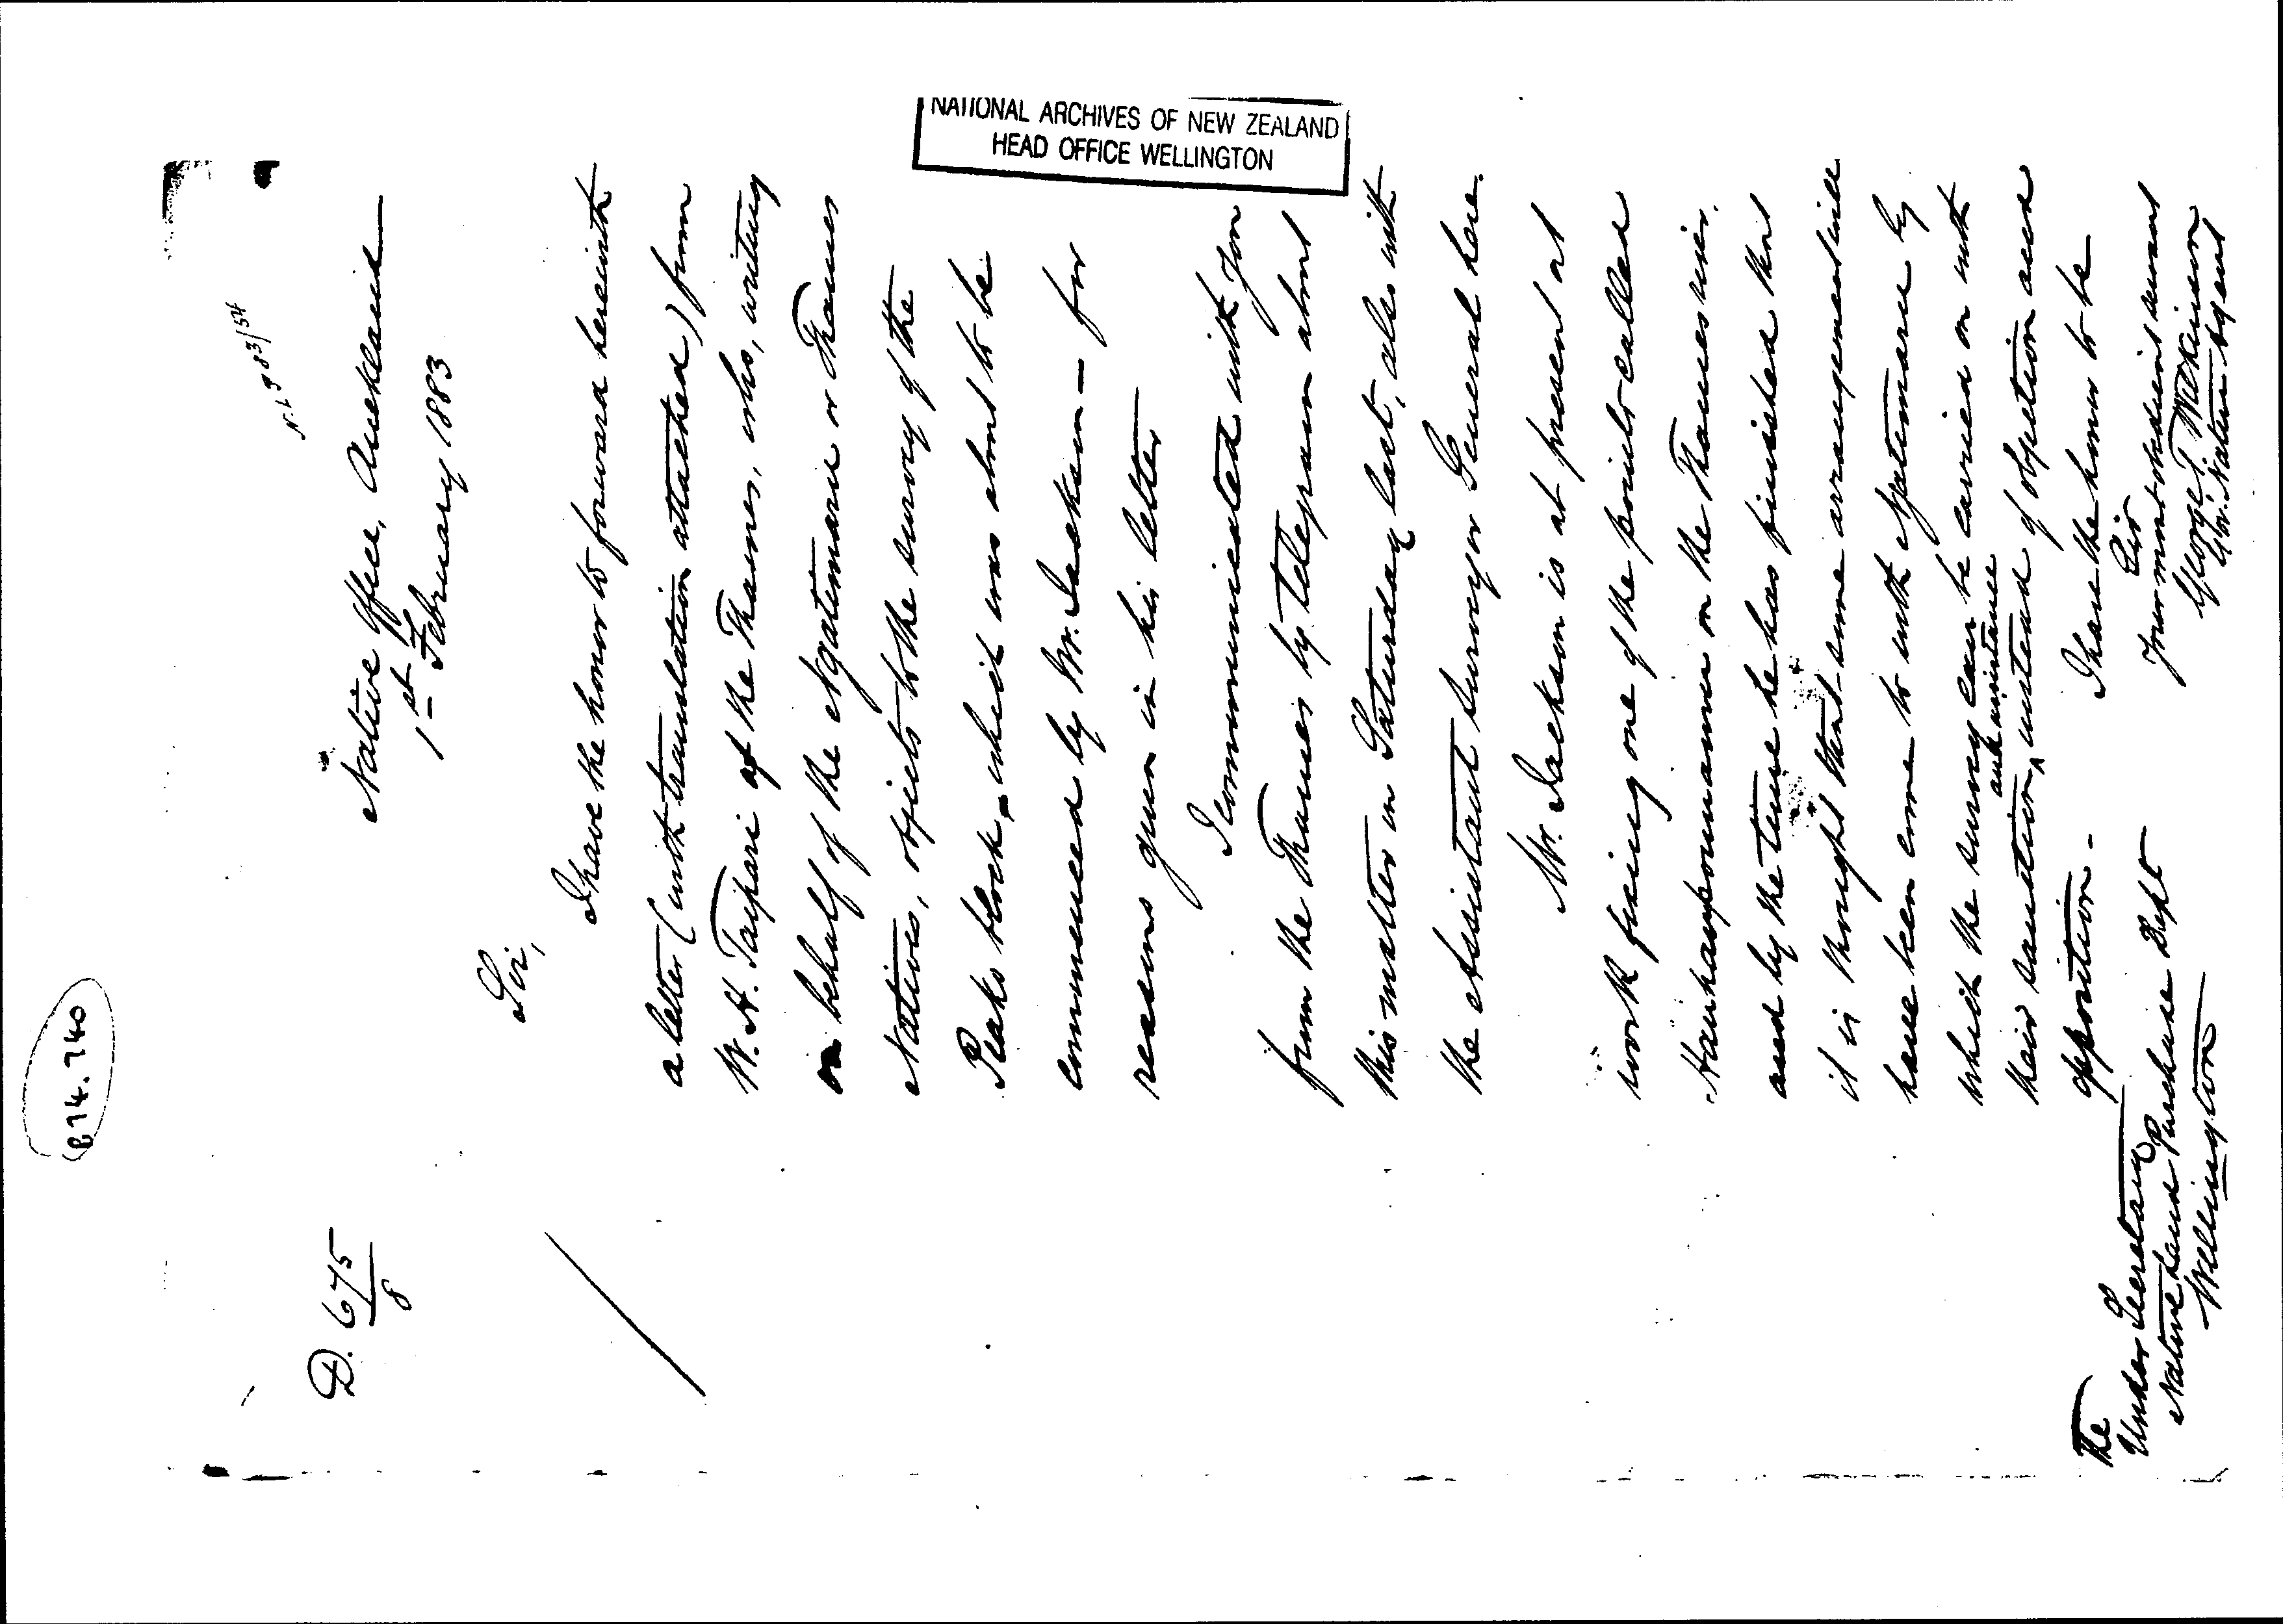 B74.740
NATIONAL ARCHIVES OF NEW ZEALAND
HEAD OFFICE WELLINGTON
D. 675/8
Native Office, Auckland
1st February 1883
Sir,
I have the honor to forward herewith
a letter (with translation attached) from
W. H. Taipari of the Thames, who, writing
on behalf of the Ngatimaru or Thames
Natives, objects to the survey of the
Piako block, which was about to be
commenced by Mr. Jackson - for
reasons given in his letter
I communicated with you
from the Thames by telegram about
this matter on Saturday last, also with
the Assistant Surveyor General here.
Mr. Jackson is at present at
work fixing one of the points called
on the Thames river,
and by the time he has finished that
it is thought that some arrangement will
have been come to with Ngatimaru by
which the survey can be carried on with
their sanction and assistance instead of objection and
opposition -
I have the honor to be
Sir
Your most obedient servant
George T. Wilkinson
Native Agent
The
Under Secretary
Native Land Purchase Dept
Wellington